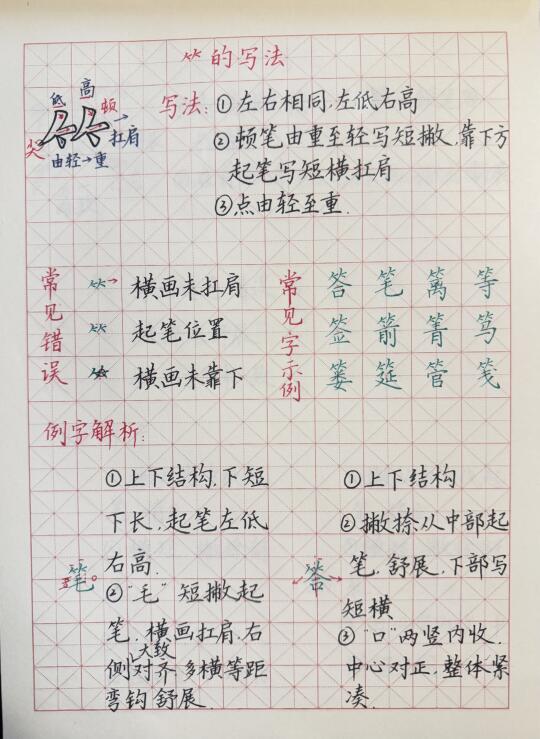 ⺮的写法
低 高 顿
尖 扛肩
由轻→重
写法:①左右相同,左低右高
②顿笔由重至轻写短撇,靠下方
起笔写短横扛肩
③点由轻至重.
常见错误
⺮→ 横画未扛肩
⺮ 起笔位置
⺮ 横画未靠下
常见字示例
答 笔 篱 等
签 箭 箐 笃
篓 筵 管 笺
例字解析:
笔
①上下结构,下短
下长,起笔左低
右高.
②"毛"短撇起
笔,横画扛肩,右
侧大致对齐,多横等距
弯钩舒展.
答
①上下结构
②撇捺从中部起
笔,舒展,下部写
短横
③"口"两竖内收,
中心对正,整体紧
凑.